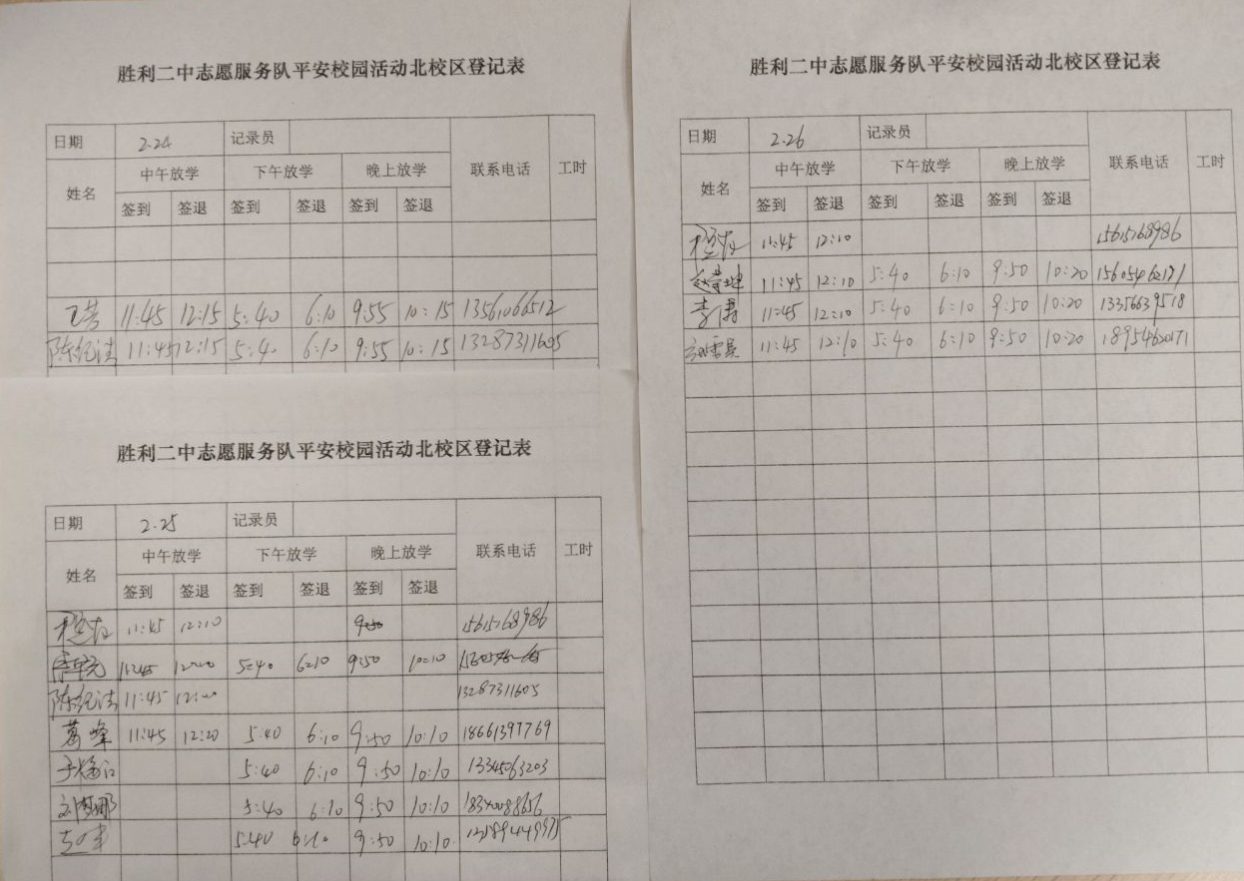 胜利二中志愿服务队平安校园活动北校区登记表
日期 2.24 记录员
姓名 中午放学 下午放学 晚上放学 联系电话 工时
签到 签退 签到 签退 签到 签退
11:45 12:15 5:40 6:10 9:55 10:15 13561066512
陈纪洁 11:45 12:15 5:40 6:10 9:55 10:15 13287311605
胜利二中志愿服务队平安校园活动北校区登记表
日期 2.25 记录员
姓名 中午放学 下午放学 晚上放学 联系电话 工时
签到 签退 签到 签退 签到 签退
11:45 12:10 15615768986
11:45 5:40 6:10 9:50 10:10
陈纪洁 11:45 13287311605
葛峰 11:45 12:20 5:40 6:10 9:50 10:10 18661397769
5:40 6:10 9:50 10:10 13345063203
刘梦娜 5:40 6:10 9:50 10:10
5:40 6:10 9:50 10:10
胜利二中志愿服务队平安校园活动北校区登记表
日期 2.26 记录员
姓名 中午放学 下午放学 晚上放学 联系电话 工时
签到 签退 签到 签退 签到 签退
11:45 12:10 15615768986
11:45 12:10 5:40 6:10 9:50 10:20
11:45 12:10 5:40 6:10 9:50 10:20 13356639518
11:45 12:10 5:40 6:10 9:50 10:20 18954620171